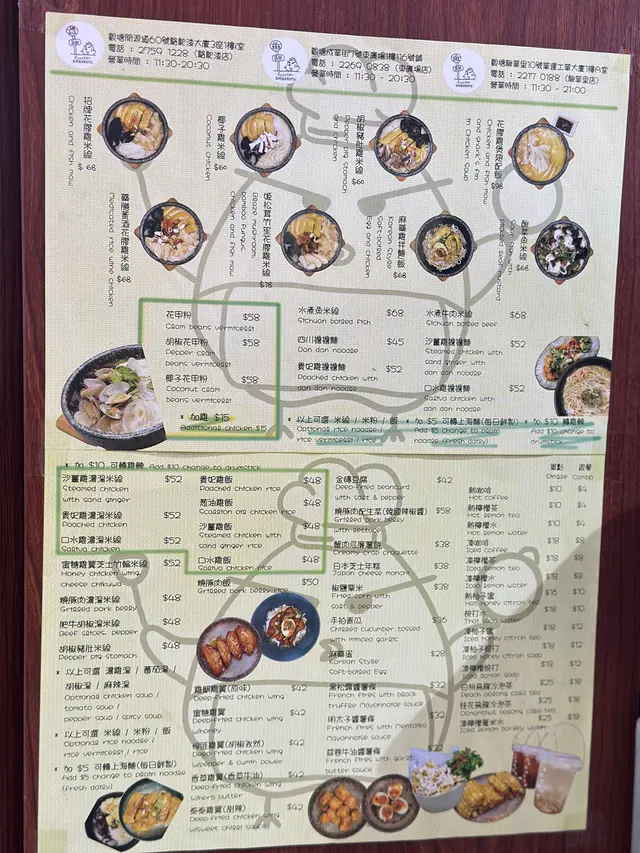 觀塘開源道60號駱駝漆大廈3座1樓I室
電話：2759 1228 (駱駝漆店)
營業時間：11:30-20:30
觀塘成業街7號東廣場1樓116號鋪
電話：2269 0838 (東廣場店)
營業時間：11:30 - 20:30
電話：2217 0188
營業時間：11:30 - 21:00
招牌花膠雞米線
Chicken and fish maw
$68
椰子雞米線
Coconut chicken
$60
胡椒豬肚雞米線
Pepper pig stomach
and chicken
$60
花膠雞煲翅配飯
Chicken and fish maw
and shark's fin
in chicken soup
$98
藥膳黃酒花膠雞米線
Medicated rice wine chicken
$68
姬松茸竹笙花膠雞米線
Blaze mushroom,
bamboo fungus,
chicken and fish maw
$78
麻藥雞拌麵飯
Korean Style
Soft-boiled
Egg and chicken
$68
酸菜魚米線
$68
花甲粉 $58
Clam beans vermicelli
胡椒花甲粉 $58
Pepper clam
beans vermicelli
椰子花甲粉 $58
Coconut clam
beans vermicelli
* 加雞 $15
Additional chicken $15
水煮魚米線 $68
Sichuan boiled fish
四川擔擔麵 $45
Dan dan noodle
貴妃雞擔擔麵 $52
Poached chicken with
dan dan noodle
水煮牛肉米線 $68
Sichuan boiled beef
沙薑雞擔擔麵 $52
Steamed chicken with
sand ginger with
dan dan noodle
口水雞擔擔麵 $52
Saliva chicken with
dan dan noodle
* 以上可選 米線 / 米粉 / 飯
Optional rice noodle /
rice vermicelli / rice
* 加 $5 可轉上海麵 (每日鮮製)
Add $5 change to plain
noodle (fresh daily)
* 加 $10 轉雞髀
Add $10 change to
drumstick
* 加 $10 可轉雞髀 Add $10 change to drumstick
沙薑雞濃湯米線 $52
Steamed chicken
with sand ginger
貴妃雞濃湯米線 $52
Poached chicken
口水雞濃湯米線 $52
Saliva chicken
蜜糖雞翼芝士竹輪米線 $52
Honey chicken wing,
cheese chikuwa
燒豚肉濃湯米線 $48
Grilled pork belly
肥牛胡椒湯米線 $48
Beef slices, pepper
胡椒豬肚米線 $48
Pepper pig stomach
* 以上可選 濃雞湯 / 蕃茄湯 /
胡椒湯 / 麻辣湯
Optional chicken soup /
tomato soup /
pepper soup / spicy soup
* 以上可選 米線 / 米粉 / 飯
Optional rice noodle /
rice vermicelli / rice
* 加 $5 可轉上海麵 (每日鮮製)
Add $5 change to plain noodle
(fresh daily)
貴妃雞飯 $48
Poached chicken rice
葱油雞飯 $48
Scallion oil chicken rice
沙薑雞飯 $48
Steamed chicken with
sand ginger rice
口水雞飯 $48
Saliva chicken rice
燒豚肉飯 $50
Grilled pork belly rice
雞翼 (原味) $42
Deep-fried chicken wing
蜜糖雞翼 $42
Deep-fried chicken wing
w/honey
雞翼 (胡椒孜然) $42
Deep-fried chicken wing
w/pepper & cumin power
香草雞翼 (香草牛油) $42
Deep-fried chicken wing
w/herb butter
泰泰雞翼 (甜辣) $42
Deep-fried chicken wing
w/sweet chilli sauce
金磚豆腐 $42
Deep-fried beancurd
with salt & pepper
燒豚肉配生菜 (韓國辣椒醬) $58
Grilled pork belly
with lettuce
蟹肉忌廉薯餅 $38
Creamy crab croquette
日本芝士年糕 $38
Japan cheese monchi
椒鹽粟米 $38
Fried corn with
salt & pepper
手拍青瓜 $36
Chilled cucumber tossed
with minced garlic
麻藥蛋 $28
Korean Style
Soft-boiled Egg
黑松露醬薯條 $32
French fries with black
truffle Mayonnaise sauce
明太子醬薯條 $32
French fries with Mentaiko
Mayonnaise sauce
蒜蓉牛油醬薯條 $32
French fries with garlic
butter sauce
單點 跟餐
Single Combo
熱咖啡 $10 $4
Hot coffee
熱檸檬茶 $10 $4
Hot lemon tea
熱檸檬水 $10 $4
Hot lemon water
凍咖啡 $18 $8
Iced coffee
凍檸檬茶 $18 $8
Iced lemon tea
凍檸檬水 $18 $8
Iced lemon water
熱柚子蜜 $16 $10
Hot honey citron tea
$18 $12
凍柚子蜜 $18 $12
Iced honey citron tea
凍柚子梳打 $18 $12
Iced honey citron soda
凍檸檬梳打 $18 $12
Iced lemon soda
白桃烏龍冷泡茶 $25 $18
Peach oolong cold tea
桂花烏龍冷泡茶 $25 $18
Osmanthus oolong cold tea
凍檸檬薏米水 $25 $18
Iced lemon barley water